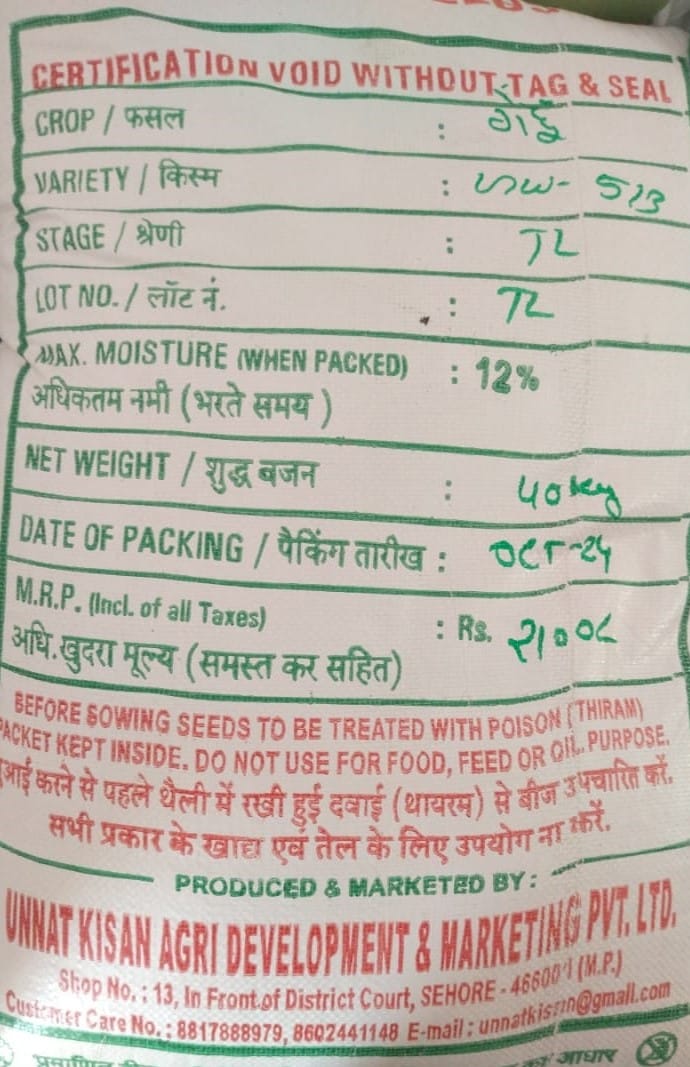 CERTIFICATION VOID WITHOUT TAG & SEAL
CROP / फसल : गेहूँ
VARIETY / किस्म : - 513
STAGE / श्रेणी : TL
LOT NO. / लॉट नं. : TL
MAX. MOISTURE (WHEN PACKED) : 12%
अधिकतम नमी (भरते समय )
NET WEIGHT / शुद्ध वजन : 40 kg
DATE OF PACKING / पैकिंग तारीख : OCT-24
M.R.P. (Incl. of all Taxes) : Rs.
अधि.खुदरा मूल्य (समस्त कर सहित)
BEFORE SOWING SEEDS TO BE TREATED WITH POISON (THIRAM)
PACKET KEPT INSIDE. DO NOT USE FOR FOOD, FEED OR OIL PURPOSE.
आई करने से पहले थैली में रखी हुई दवाई (थायरम) से बीज उपचारित करें.
सभी प्रकार के खाद्य एवं तेल के लिए उपयोग ना करें.
PRODUCED & MARKETED BY :
UNNAT KISAN AGRI DEVELOPMENT & MARKETING PVT. LTD.
Shop No. : 13, In Front of District Court, SEHORE - 466001 (M.P.)
Customer Care No. : 8817888979, 8602441148 E-mail : unnatkisan@gmail.com
प्रमाणित का आधार